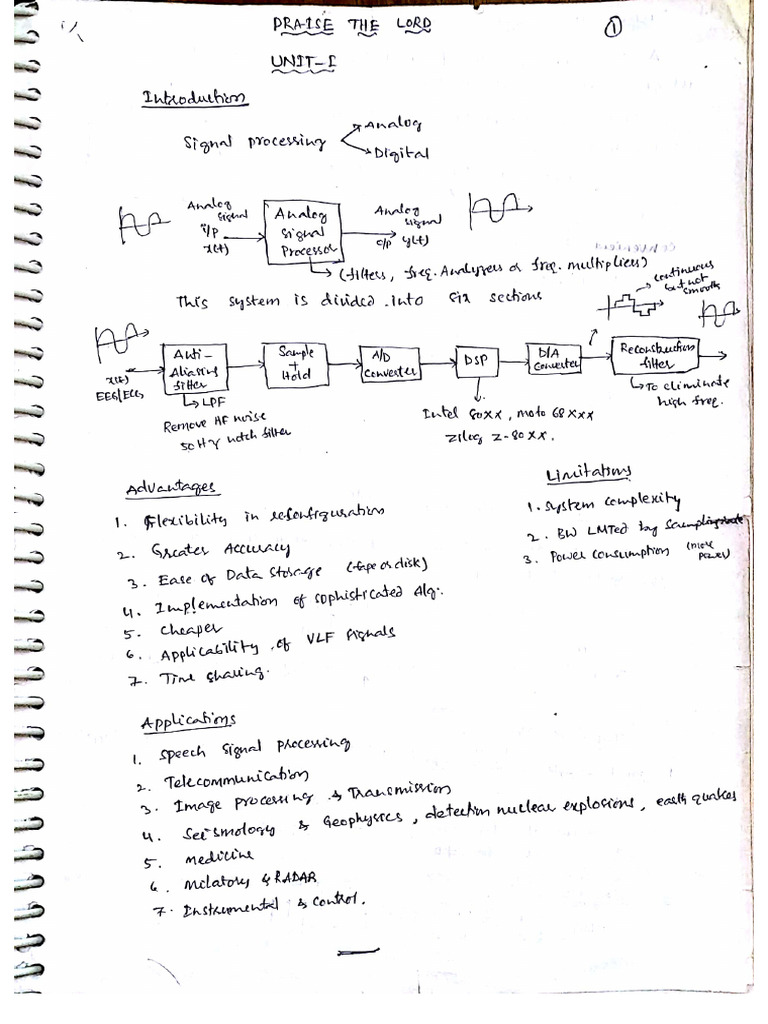 PRAISE THE LORD
①
UNIT-I
Introduction
Signal processing
Analog
Digital
Analog Signal
i/p
x(t)
Analog Signal Processor
Analog Signal
o/p y(t)
(filters, freq. Analyzers or freq. multipliers)
This system is divided into six sections
continuous but not smooth
x(t)
EEG/ECG
Anti-Aliasing filter
Sample + Hold
A/D Converter
DSP
D/A Converter
Reconstruction filter
LPF
Remove HF noise
50 Hz notch filter
Intel 80XX, moto 68XXX
Zilog Z-80XX.
To eliminate
high freq.
Advantages
1. Flexibility in reconfiguration
2. Greater Accuracy
3. Ease of Data Storage (tape or disk)
4. Implementation of sophisticated Alg:
5. Cheaper
6. Applicability of VLF signals
7. Time sharing.
Limitations
1. System complexity
2. BW LMTed by Sampling rate
3. Power Consumption (more power)
Applications
1. Speech Signal processing
2. Telecommunication
3. Image processing & Transmission
4. Seismology & Geophysics, detection nuclear explosions, earth quakes
5. medicine
6. Milatory & RADAR
7. Instrumental & control.